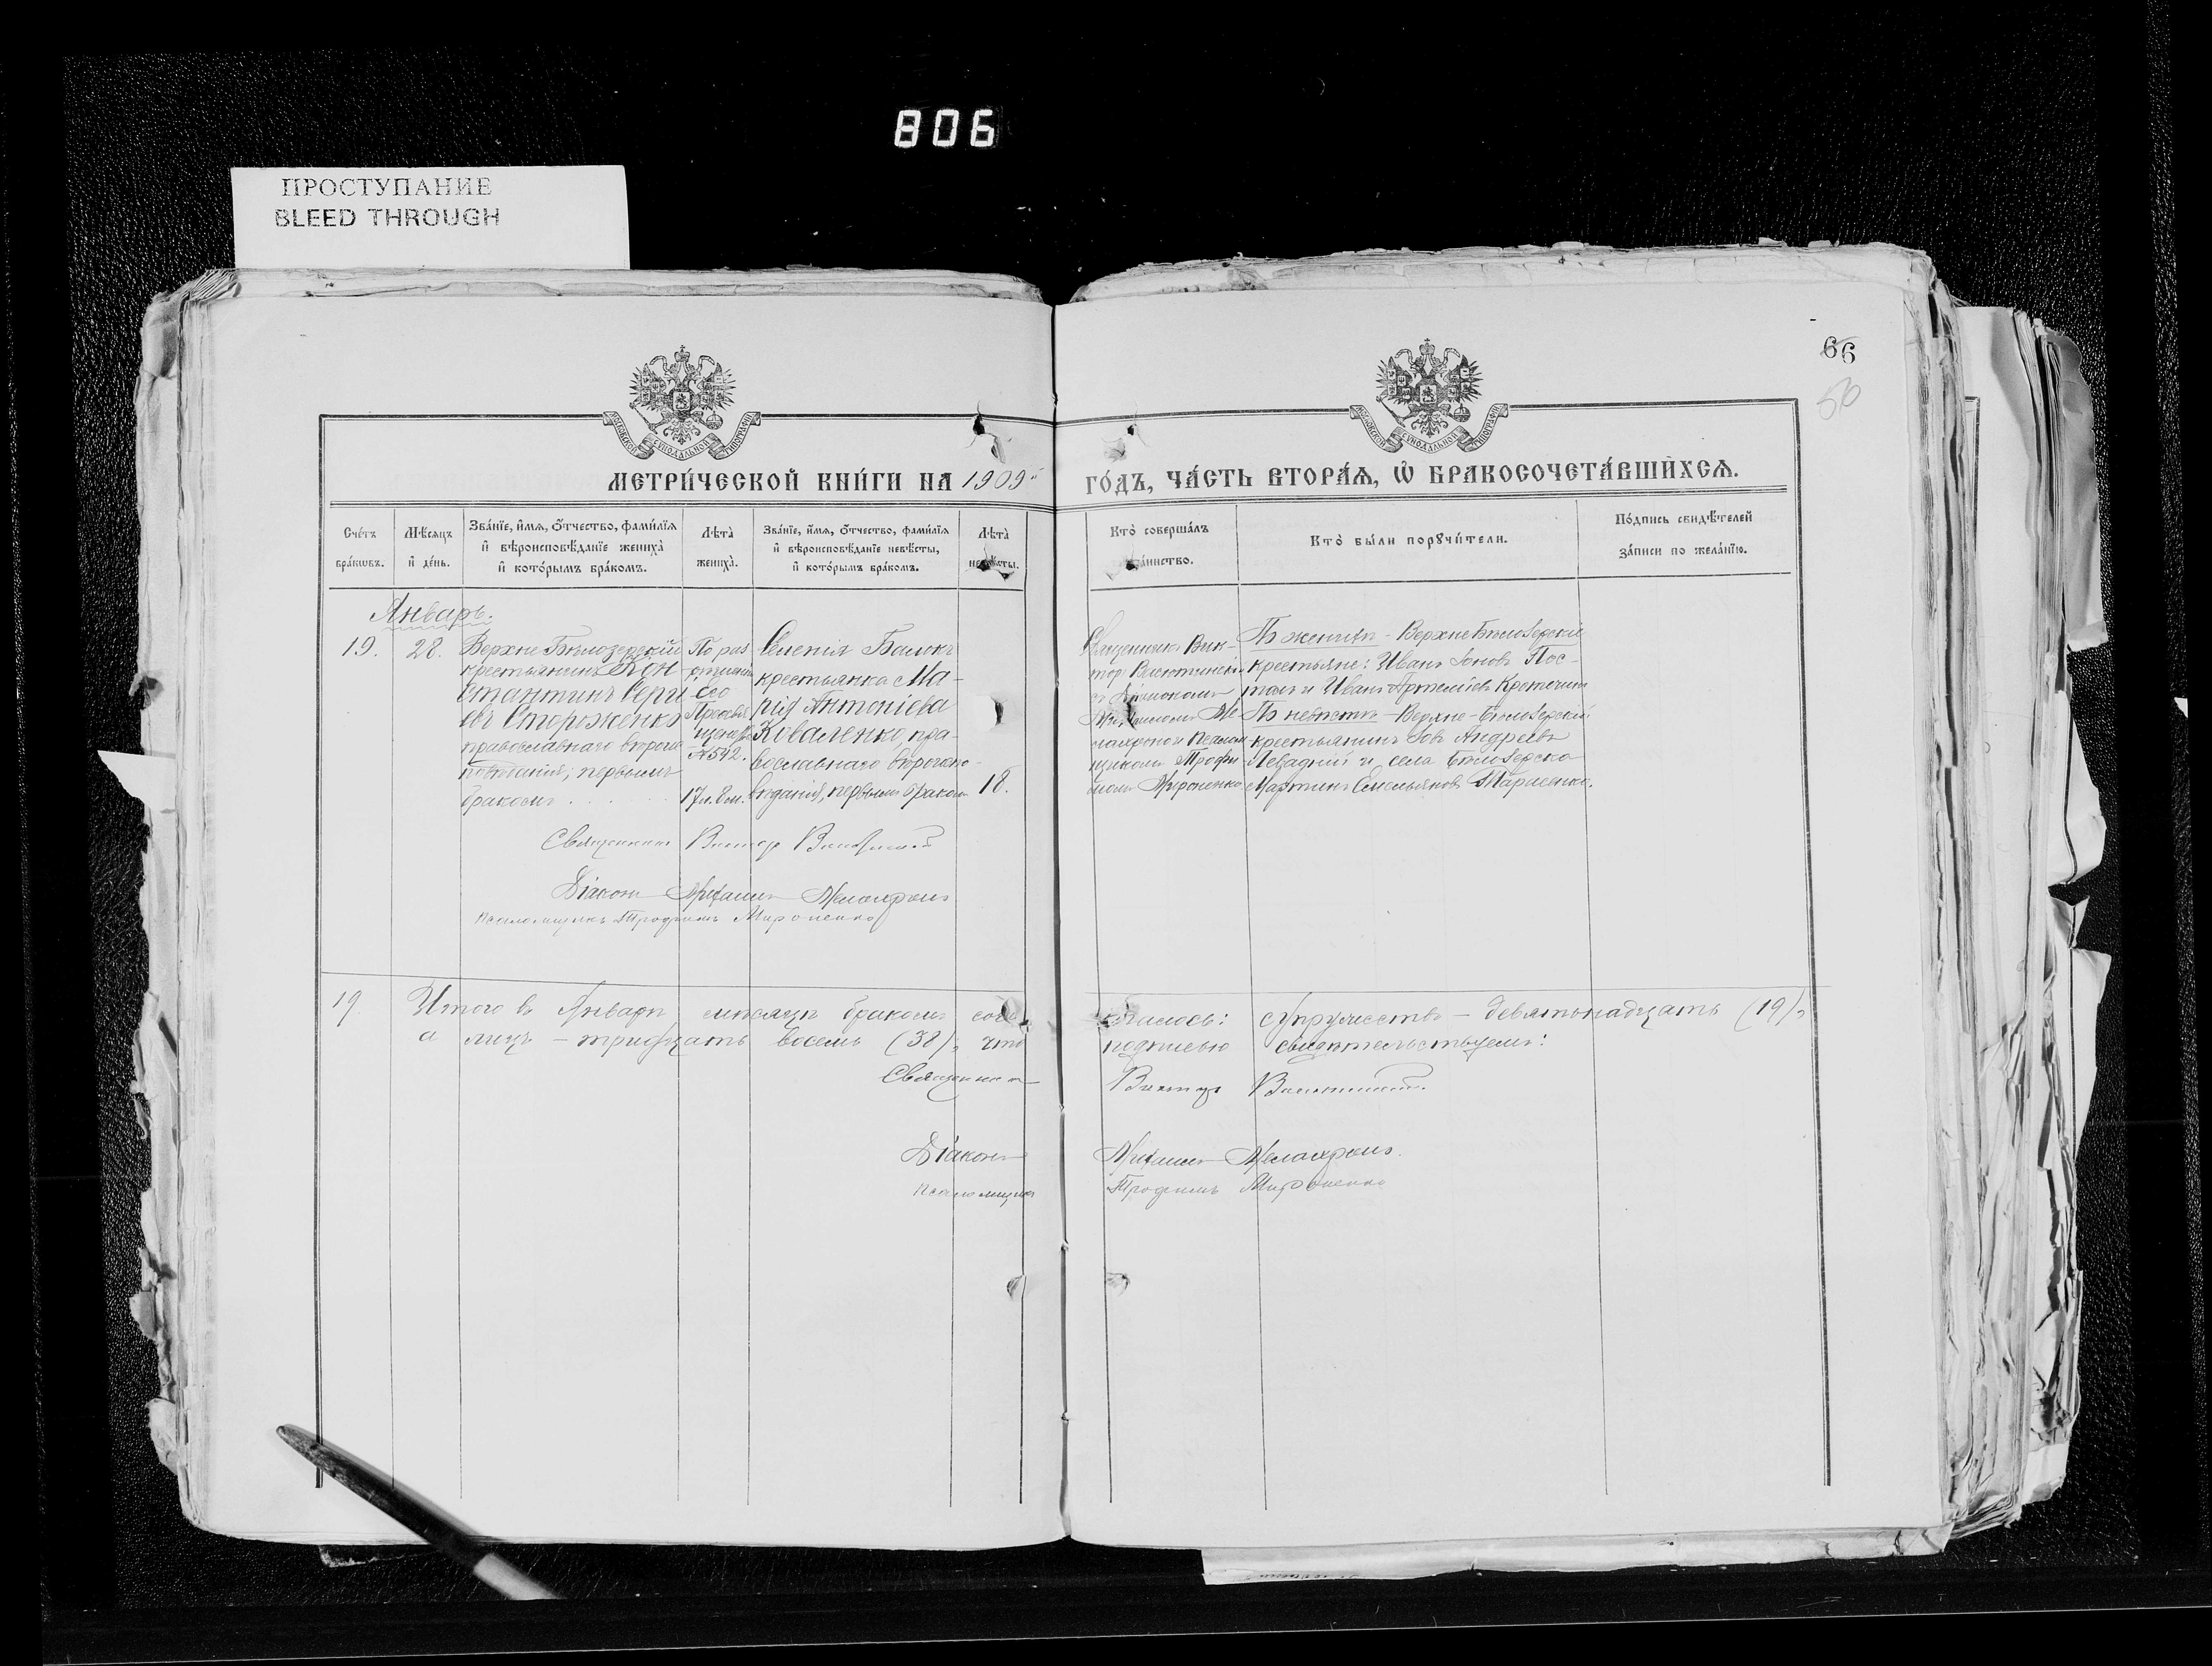 806
ПРОСТУПАНИЕ
BLEED THROUGH
66
50
МОСКОВСКОЙ СѴНОДАЛЬНОЙ ТИПОГРАФІИ
МОСКОВСКОЙ СѴНОДАЛЬНОЙ ТИПОГРАФІИ
МЕТРИ́ЧЕСКОЙ КНИ́ГИ НА 1909
ГО́ДЪ, ЧА́СТЬ ВТОРА́Ѧ, Ѡ҆ БРАКОСОЧЕТА́ВШИХСѦ.
Сче́тъ
бра́кѡвъ.
Мѣ́сяцъ
и҆ де́нь.
Зва́нїе, и҆́мѧ, ѻ҆́тчество, фами́лїѧ
и҆ вѣроисповѣ́данїе жениха̀
и҆ кото́рымъ бра́комъ.
Лѣта̀
жениха̀.
Зва́нїе, и҆́мѧ, ѻ҆́тчество, фами́лїѧ
и҆ вѣроисповѣ́данїе невѣ́сты,
и҆ кото́рымъ бра́комъ.
Лѣта̀
невѣ́сты.
Кто̀ соверша́лъ
та́инство.
Кто̀ бы́ли порꙋчи́тели.
По́дпись свидѣ́телей
за́писи по жела́нїю.
Январь.
19.
28.
Верхне-Бѣлозерскій
крестьянинъ Кон
стантинъ Сергі
евъ Стороженко
православнаго вѣроис
повѣданія, первымъ
бракомъ
По раз
рѣшенію
Его
Преосвя
щенства
№ 592.
17 л. 8 м.
Селенія Балокъ
крестьянка Ма-
рія Антоніева
Коваленко пра-
вославнаго вѣроиспо-
вѣданія, первымъ бракомъ
18.
Священникъ Вик-
торъ
съ Діакономъ
Михаиломъ Ме
и Псалом
щикомъ Трофи
момъ Мироненко
По женихѣ - Верхне Бѣлозерскіе
крестьяне: Иванъ Іоновъ Пос-
толъ и Иванъ Артеміевъ
По невѣстѣ - Верхне-Бѣлозерскій
крестьянинъ Іовъ Андреевъ
Левадній и села Бѣлозерска
Мартинъ Емельяновъ Тарасенко.
Священникъ Викторъ
Діаконъ Михаилъ
Псаломщикъ Трофимъ Мироненко
19.
Итого въ Январѣ мѣсяцѣ бракомъ соче
талось: супружествъ - девятьнадцать (19),
а лицъ - тридцать восемь (38), что
подписью свидѣтельствуемъ:
Священникъ Викторъ
Діаконъ Михаилъ
Псаломщикъ Трофимъ Мироненко